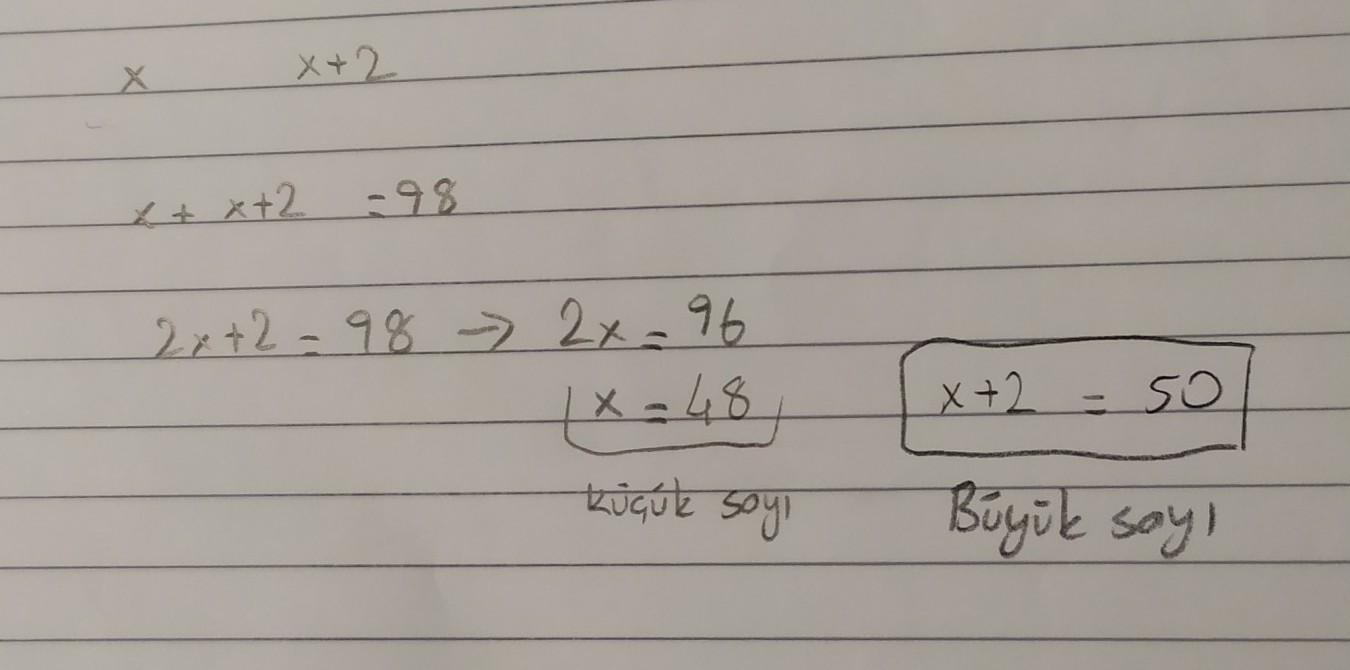 x x+2
x + x+2 = 98
2x+2 = 98 → 2x = 96
x = 48 x+2 = 50
küçük sayı Büyük sayı